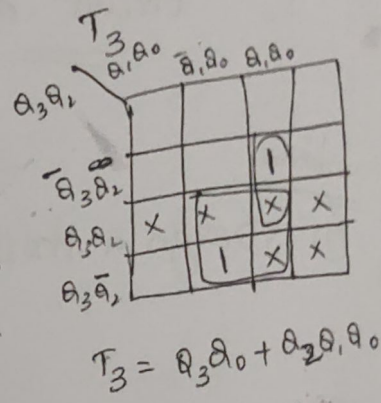 T₃
Q₁Q₀ Q̄₁Q₀ Q₁Q₀
Q₃Q₂
1
Q̄₃Q̄₂
X X X X
Q₃Q₂
1 X X
Q₃Q̄₂
T₃ = Q₃Q₀ + Q₂Q₁Q₀